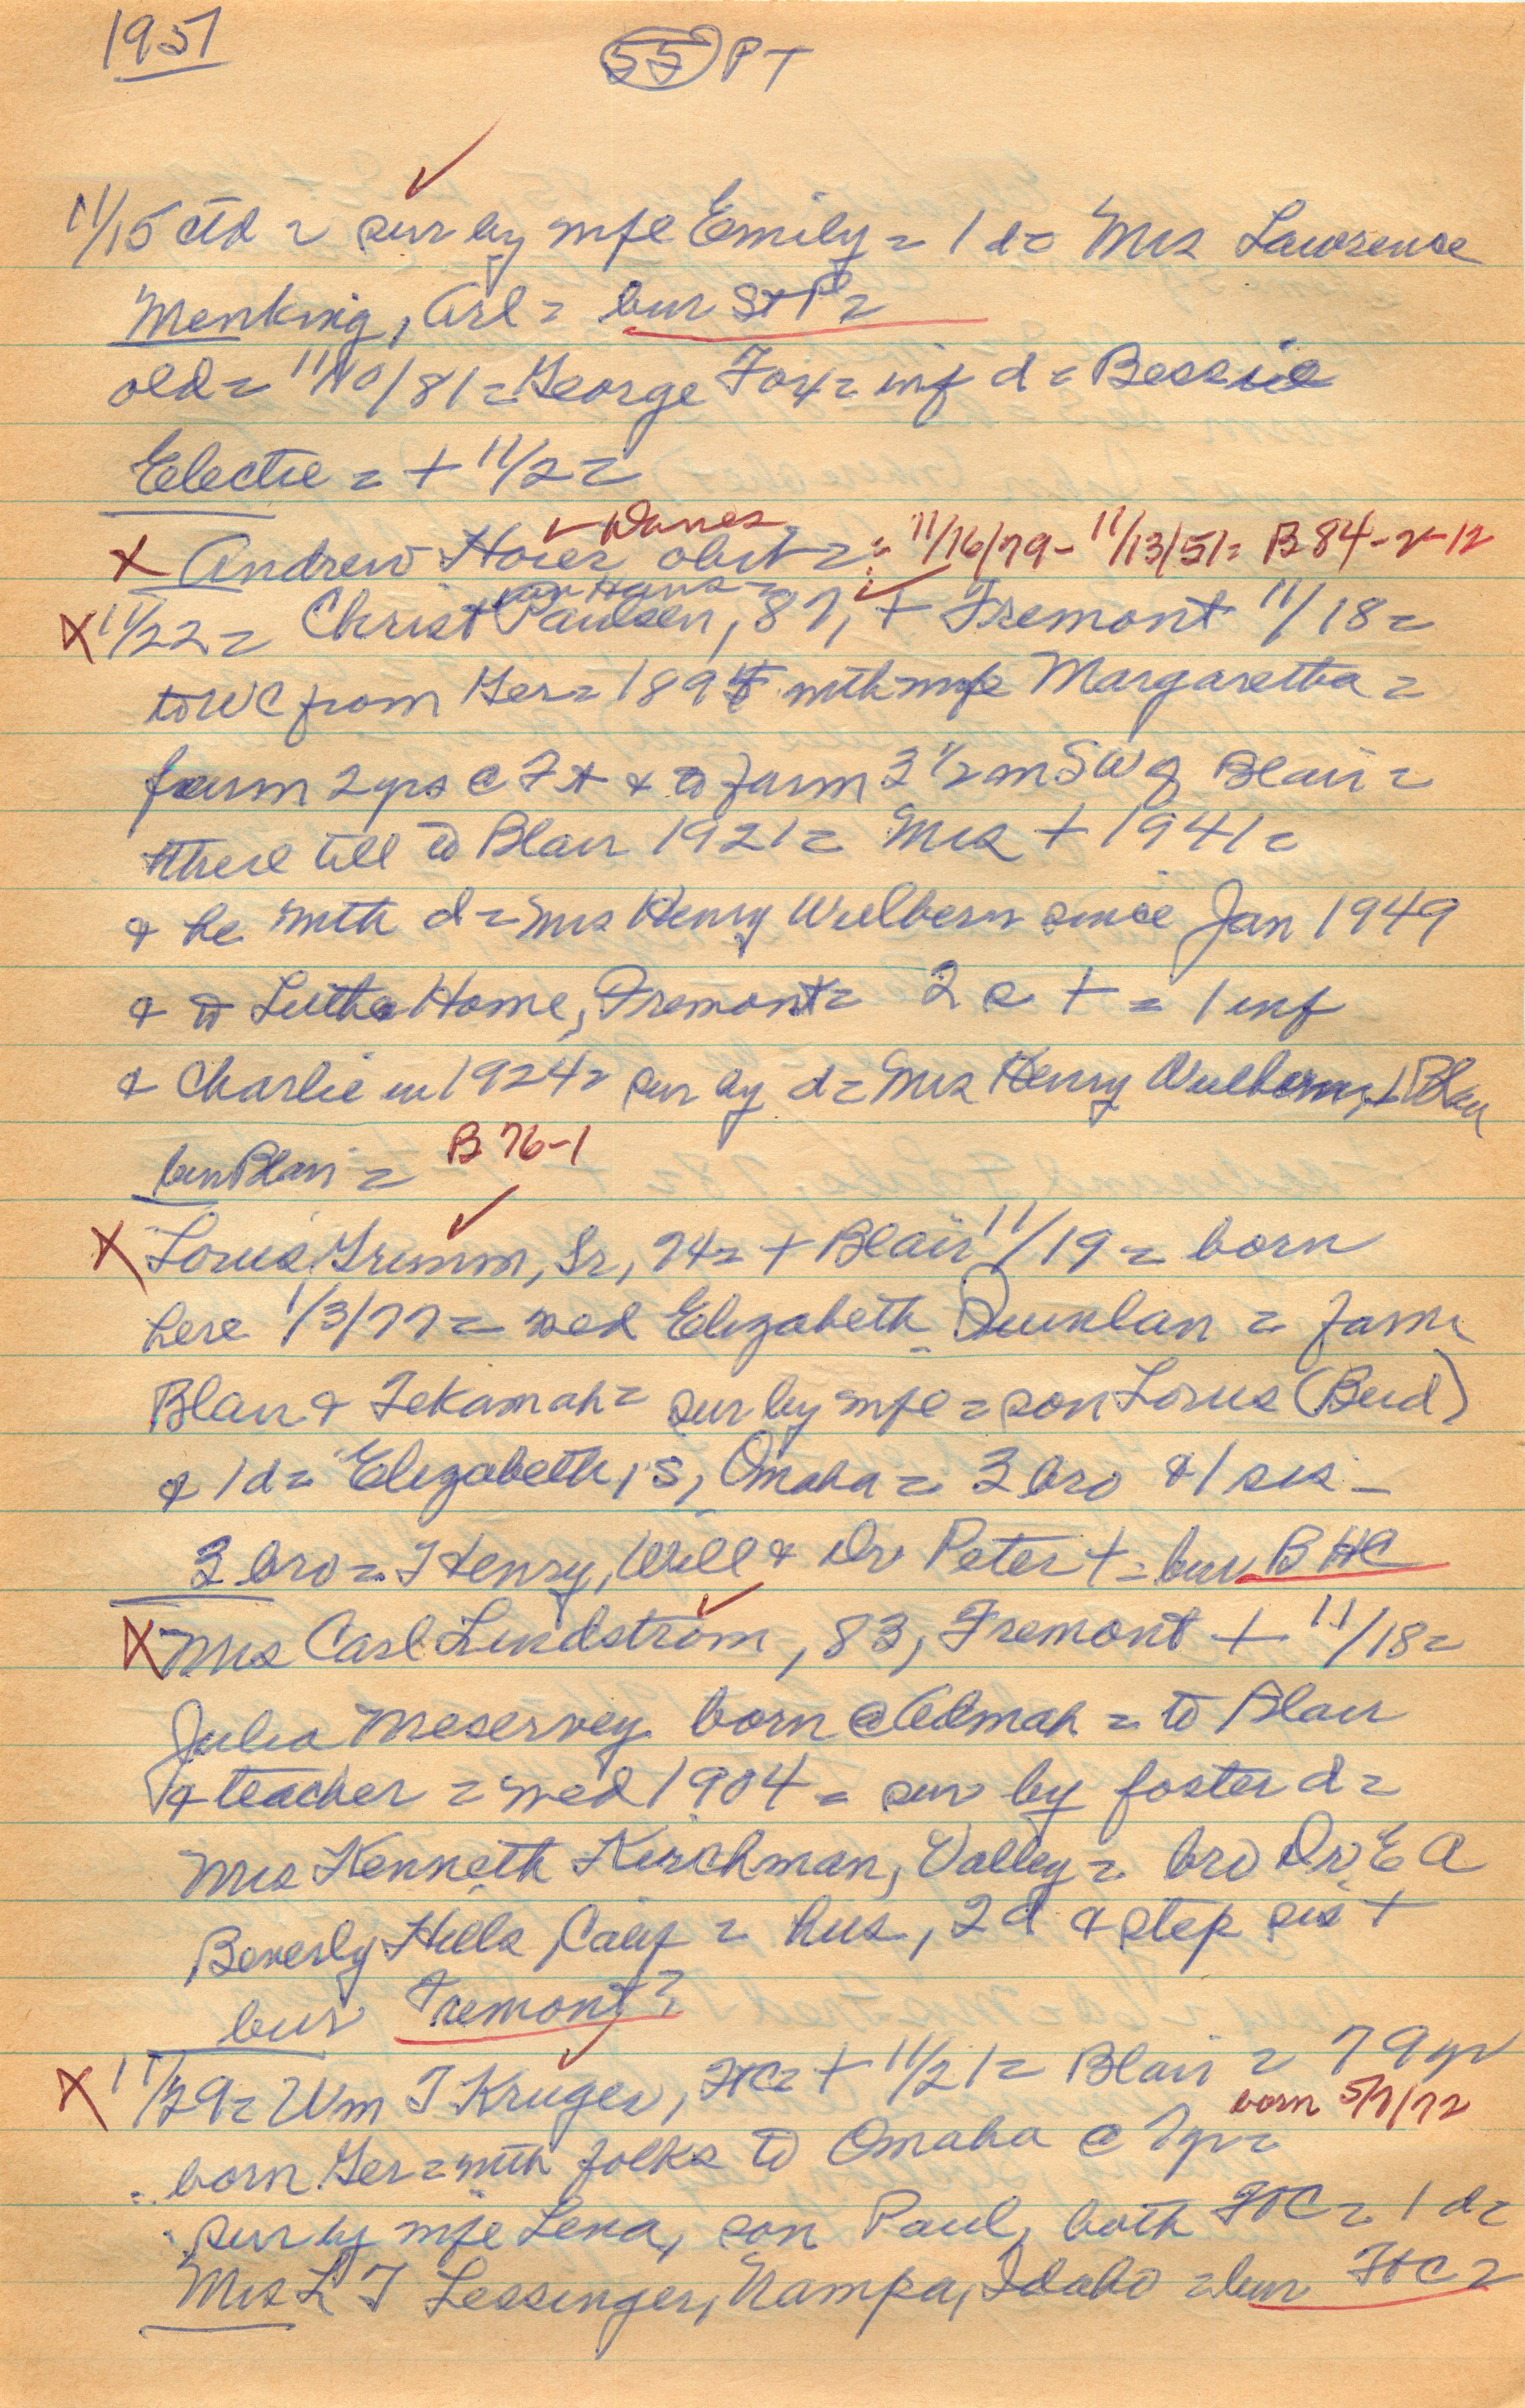 1951
55 PT
11/15 ctd = sur by wife Emily = 1 d = Mrs Lawrence
Menking, Arl = bur St P =
old = 11/10/81 = George Fox = inf d = Bessie
Electie = + 11/2 =
Danes
X Andrew Hoier obit = : 11/16/79 - 11/13/51 = B 84-2-12
von Hans =
X 11/22 = Christ Paulsen, 87, + Fremont 11/18 =
to WC from Ger = 1894 with wife Margaretha =
farm 2 yrs @ Ft & to farm 3 1/2 m SW of Blair =
there till to Blair 1921 = Mrs + 1941 =
& he with d = Mrs Henry Wulbern since Jan 1949
& to Luth Home, Fremont = 2 s + = 1 inf
& Charlie in 1924 = sur by d = Mrs Henry Wulbern, Blair
bur Blair = B 76-1
X Louis Grimm, Sr, 74 = + Blair 11/19 = born
here 1/3/77 = wed Elizabeth Quinlan = farm
Blair & Tekamah = sur by wife = son Louis (Bud)
& 1 d = Elizabeth, S, Omaha = 3 bro & 1 sis -
3 bro = Henry, Will & Dr Peter + = bur BHC
X Mrs Carl Lindstrom, 83, Fremont + 11/18 =
Julia Meservey born @ Admah = to Blair
& teacher = wed 1904 = sur by foster d =
Mrs Kenneth Kirchman, Valley = bro Dr E A
Beverly Hills, Calif = hus, 2 d & step sis +
bur Fremont =
X 11/29 = Wm T Kruger, FtC = + 11/21 = Blair = 79 yr
born 5/7/72
born Ger = with folks to Omaha @ 7 yr =
sur by wife Lena, son Paul, both FtC = 1 d =
Mrs L T Lessinger, Nampa, Idaho = bur FtC =